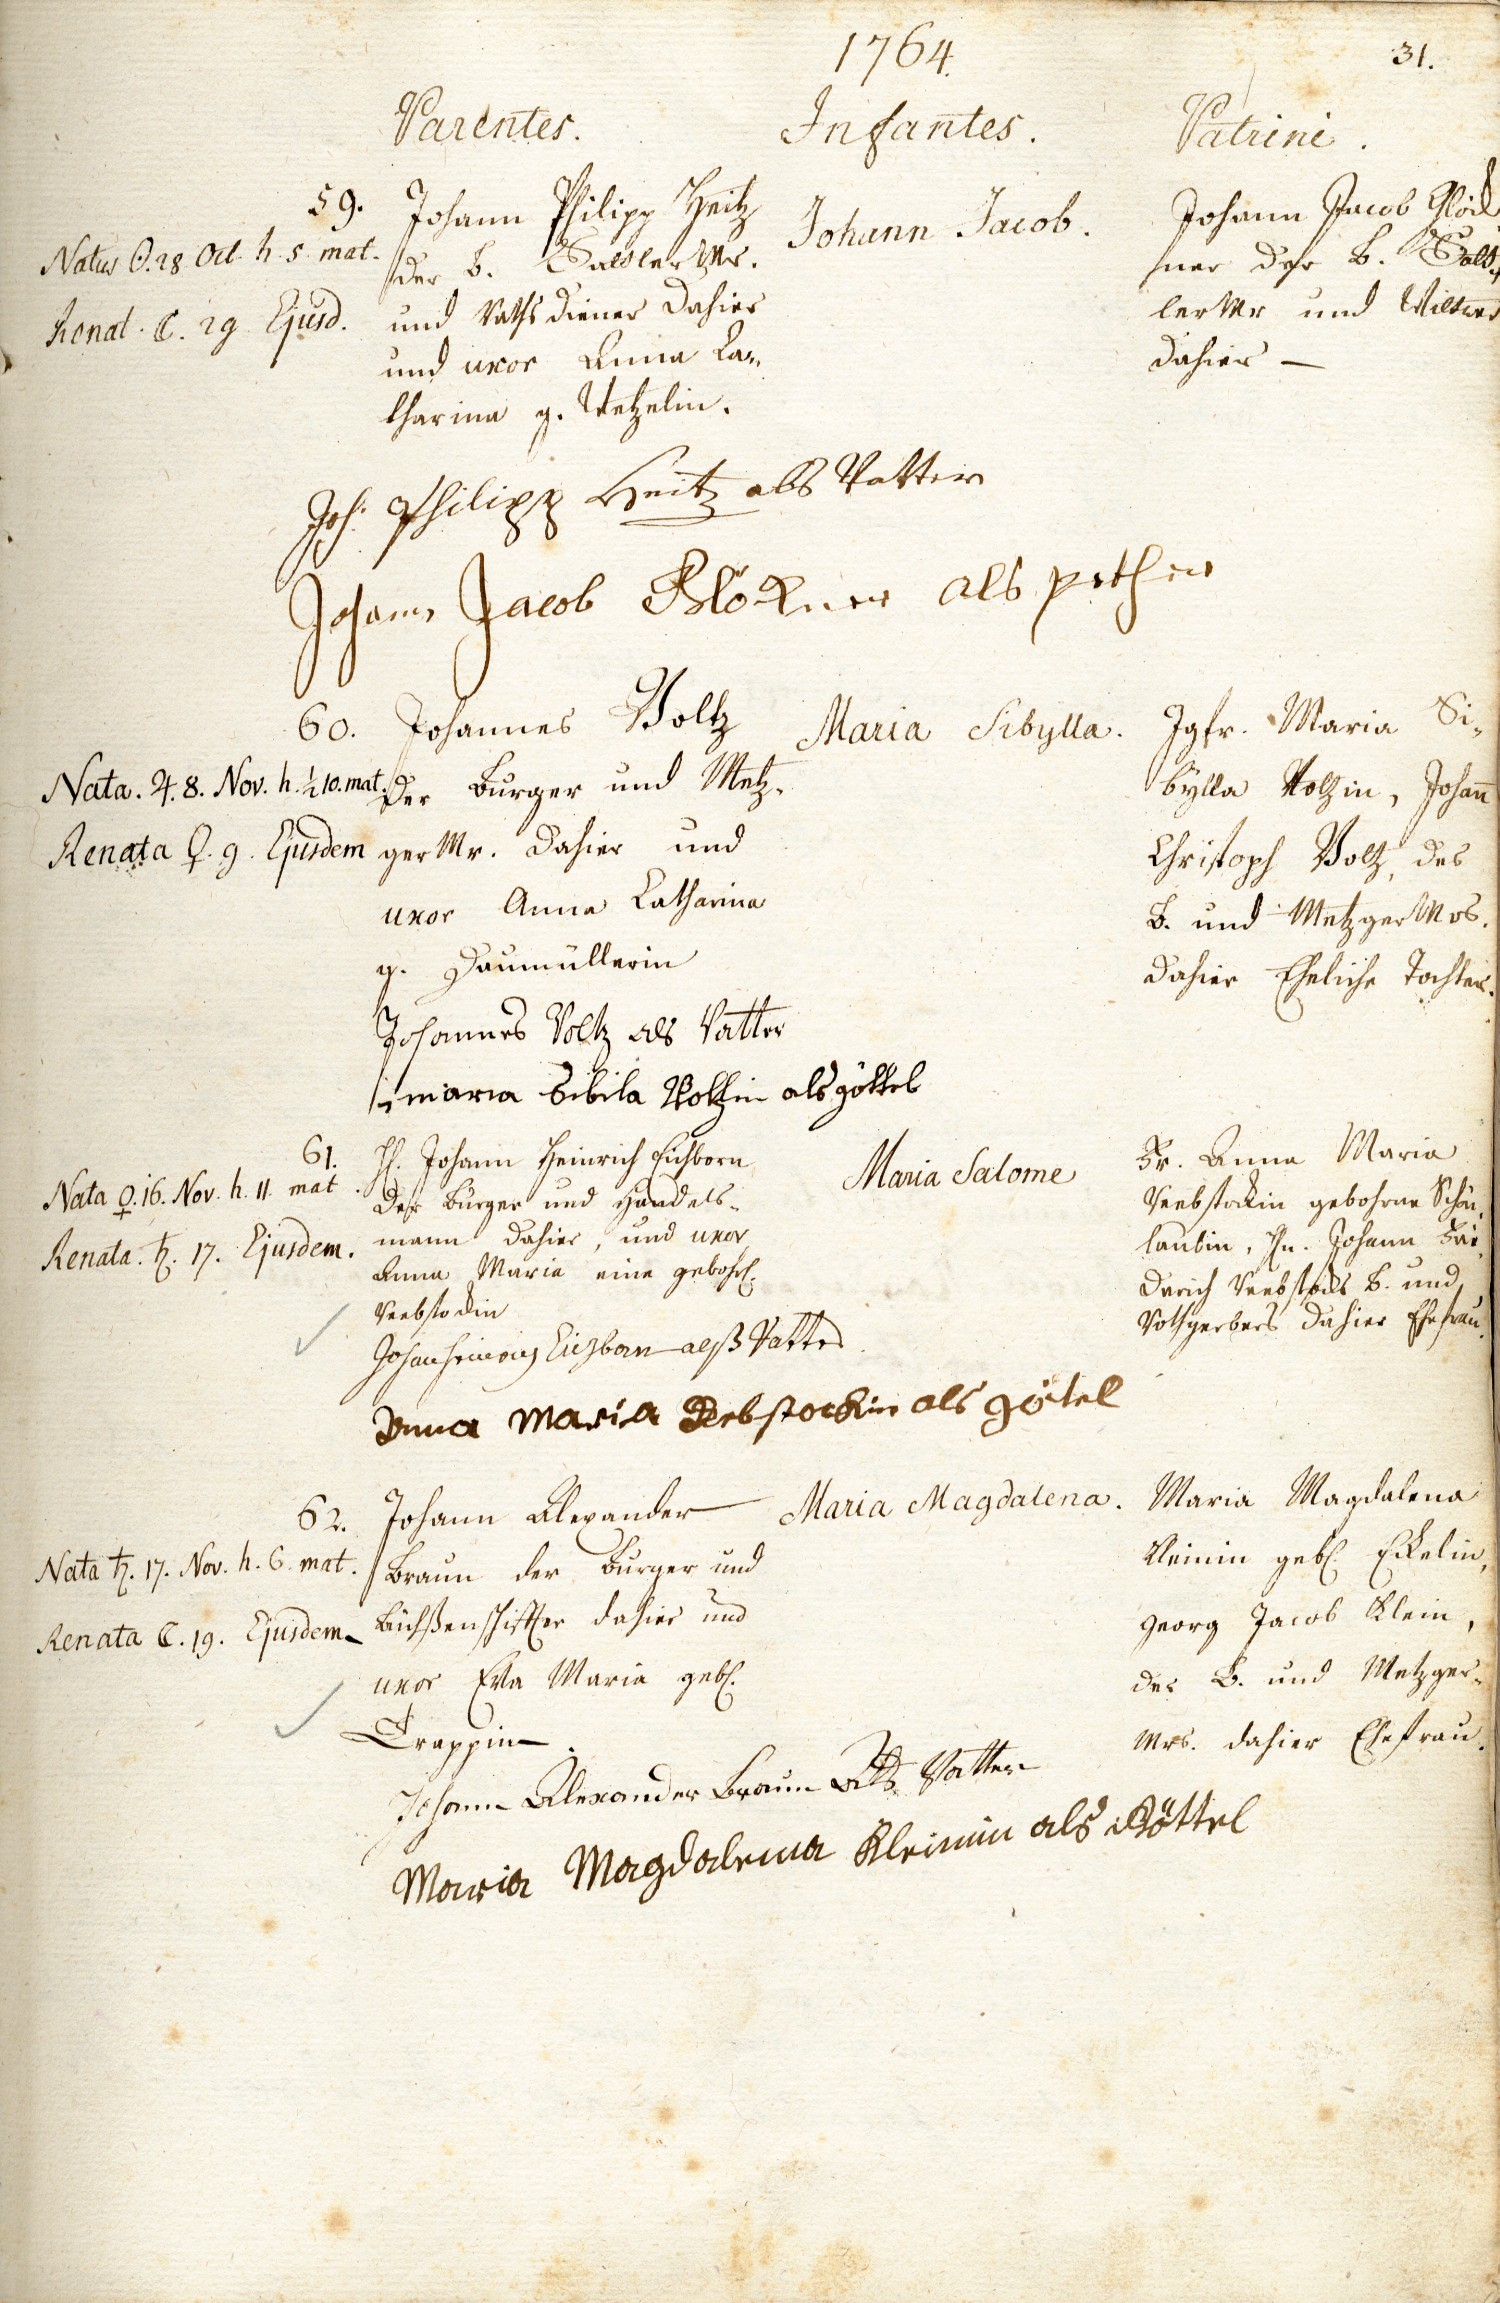 1764.
31.
Parentes.
Infantes.
Patrini.
59.
Natus ☉. 28. Oct. h. 5. mat.
Renat. ☾. 29 Ejusd.
Johann Philipp Heitz
der B. Sattler Mr.
und Rathsdiener dahier
und uxor Anna Ca-
tharina g.
Johann Jacob.
Johann Jacob Glöck
ner der B. Satt-
ler Mr und Wittwer
dahier —
Joh. Philipp Heitz als Vatter
Johann Jacob Glöckner als pether
60.
Nata. ♃. 8. Nov. h. ½ 10. mat.
Renata ♀. 9. Ejusdem
Johannes Voltz
der Burger und Metz-
ger Mr. dahier und
uxor Anna Catharina
g. Daumüllerin
Maria Sibylla.
Jgfr. Maria Si-
bylla Voltzin, Johann
Christoph Voltz, des
B. und Metzger Mrs.
dahier Eheliche Tochter.
Johannes Voltz als Vatter
maria Sibila Voltzin als göttel
61.
Nata ♀. 16. Nov. h. 11. mat.
Renata. ♄. 17. Ejusdem.
H. Johann Heinrich Eichborn
der Burger und Handels-
mann dahier, und uxor
Anna Maria eine gebohr.
Rebstockin
Maria Salome
Fr. Anna Maria
Rebstockin gebohrne Schön-
laubin, Hn. Johann Frie-
derich Rebstocks B. und
Rothgerbers dahier Ehefrau.
Johan heinrich Eichborn alß Vatter
Anna Maria Rebstockin als götel
62.
Nata ♄. 17. Nov. h. 6. mat.
Renata ☾. 19. Ejusdem
Johann Alexander
Braun der Burger und
Büchßenschiffter dahier und
uxor Eva Maria geb.
Trappin.
Maria Magdalena.
Maria Magdalena
Kleinin geb. Eckelin,
Georg Jacob Klein,
des B. und Metzger-
Mrs. dahier Ehefrau.
Johann Alexander Braun Als Vatter
Maria Magdalena Kleinin als Göttel